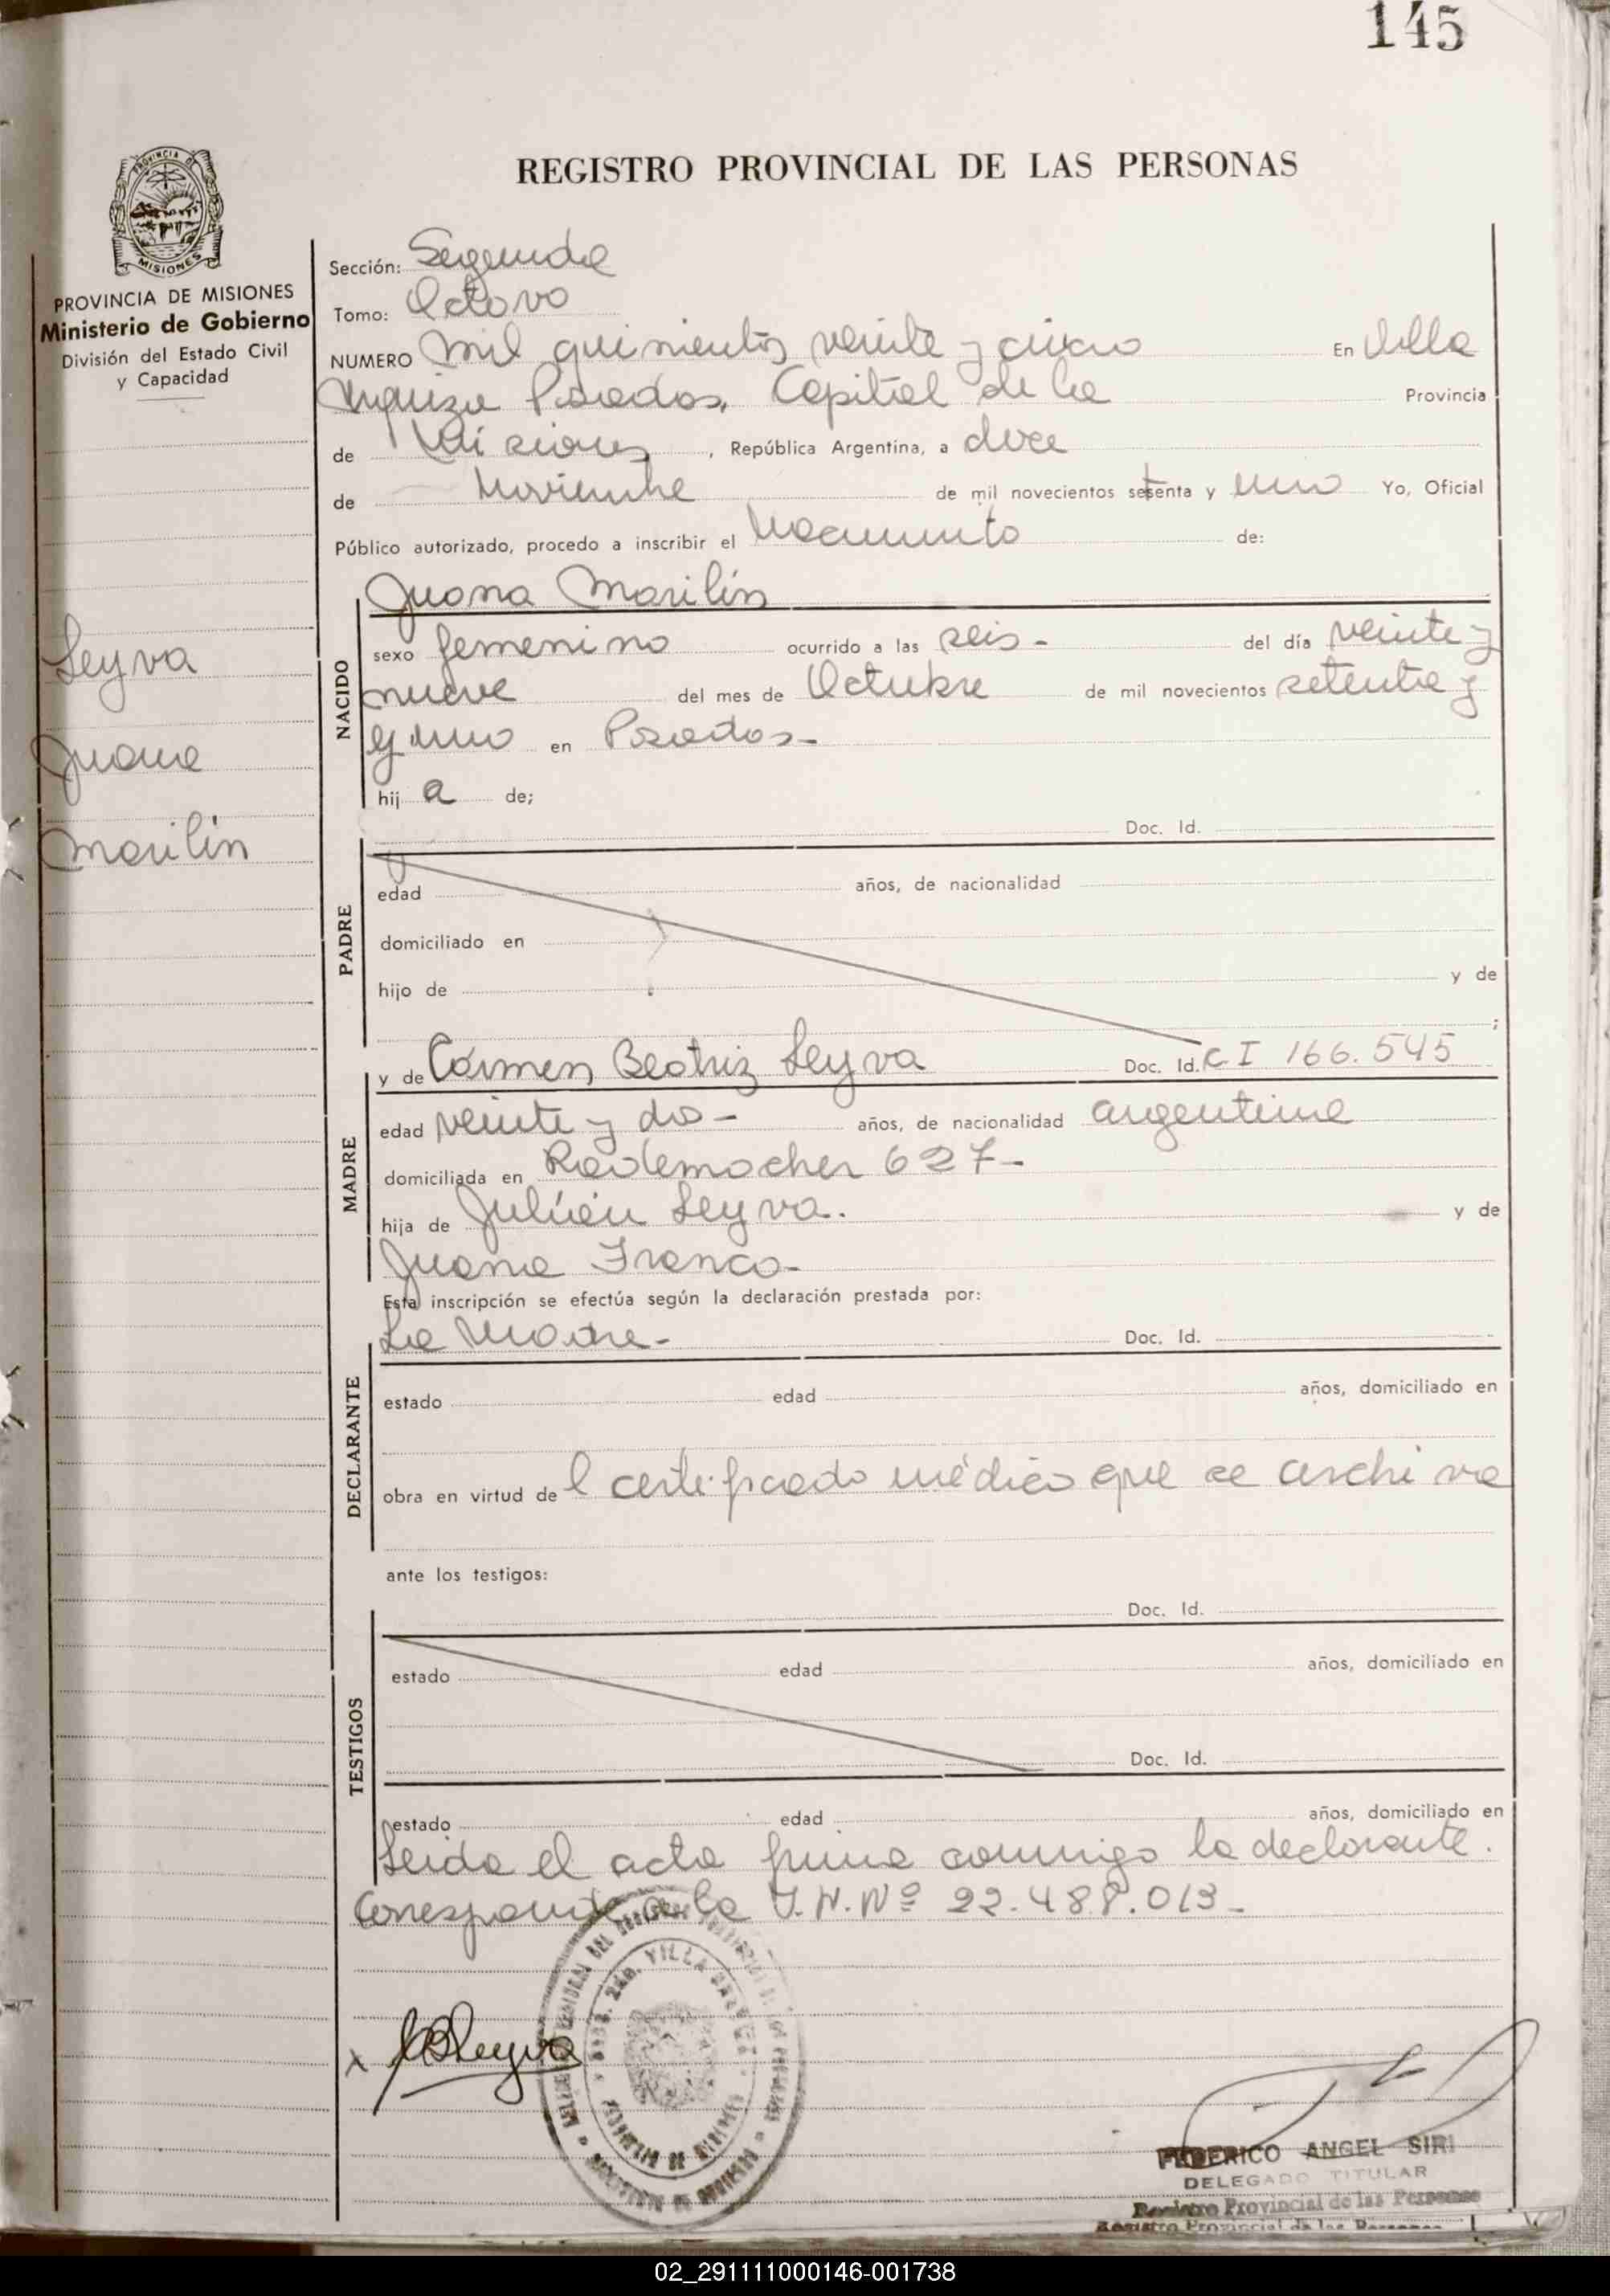 145
REGISTRO PROVINCIAL DE LAS PERSONAS
PROVINCIA DE MISIONES
Ministerio de Gobierno
División del Estado Civil
y Capacidad
Sección: Segunda
Tomo: Octavo
NUMERO Mil quinientos veinte y cinco En Villa
Urquiza Posadas, Capital de la Provincia
de Misiones, República Argentina, a doce
de Noviembre de mil novecientos setenta y uno Yo, Oficial
Público autorizado, procedo a inscribir el Nacimiento de:
Juana Marilín
Leyva
Juana
Marilín
NACIDO
sexo femenino ocurrido a las seis - del día veinte y
nueve del mes de Octubre de mil novecientos setenta y
y uno en Posadas-
hij a de;
Doc. Id.
PADRE
edad años, de nacionalidad
domiciliado en
hijo de y de
;
y de Cármen Beatriz Leyva Doc. Id. C I 166.545
MADRE
edad veinte y dos - años, de nacionalidad argentina
domiciliada en Rademacher 627-
hija de Julián Leyva. y de
Juana Franco-
Esta inscripción se efectúa según la declaración prestada por:
La Madre- Doc. Id.
DECLARANTE
estado edad años, domiciliado en
obra en virtud de l certificado médico que se archiva
ante los testigos:
Doc. Id.
TESTIGOS
estado edad años, domiciliado en
Doc. Id.
estado edad años, domiciliado en
Leida el acta firma conmigo la declarante.
Corresponde a la I.N.Nº 22.488.013-
x CBLeyva
FEDERICO ANGEL SIRI
DELEGADO TITULAR
Registro Provincial de las Personas
Registro Provincial de las Personas
02_291111000146-001738